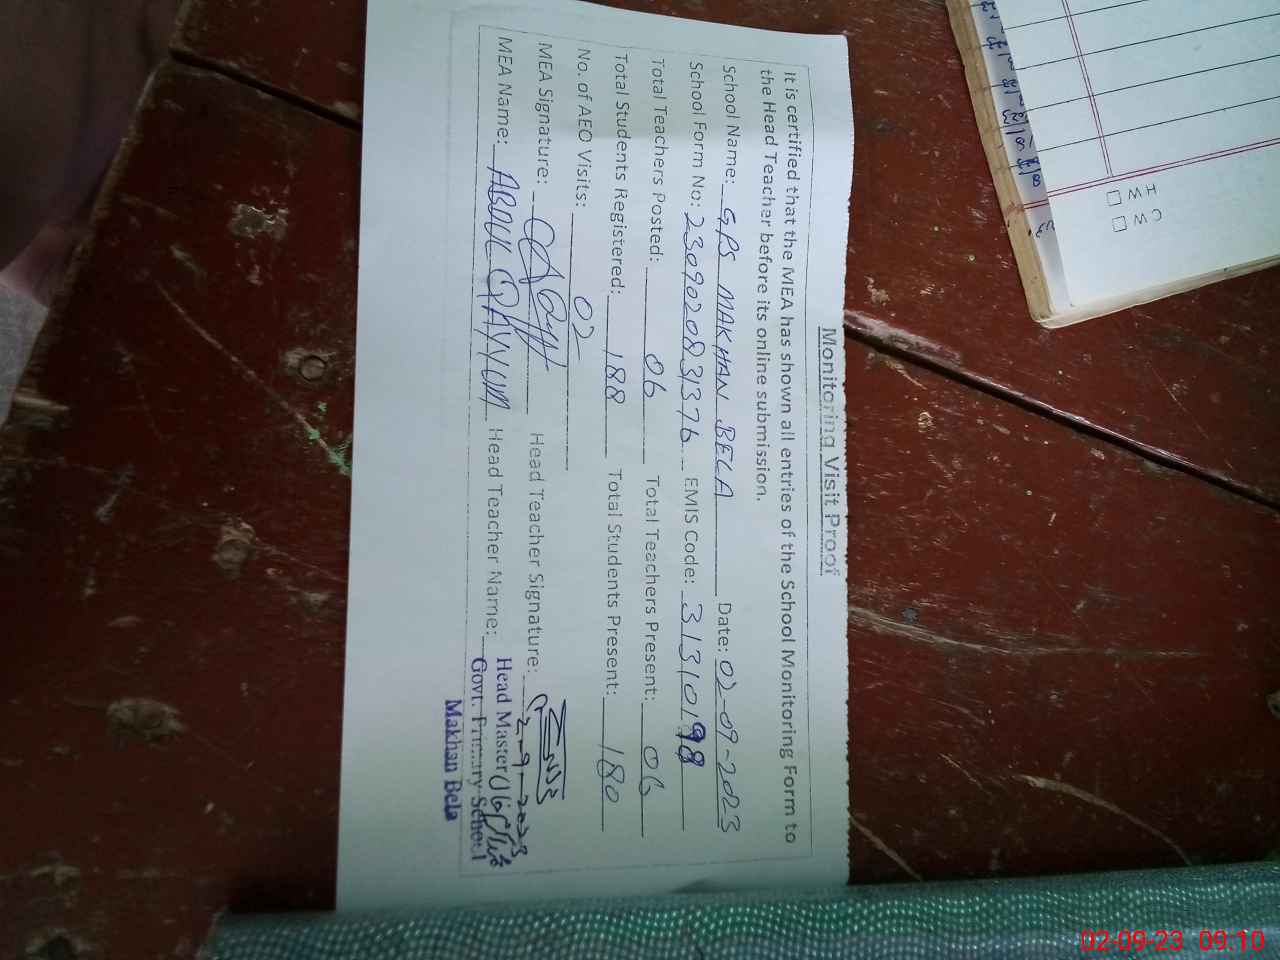 Monitoring Visit Proof
It is certified that the MEA has shown all entries of the School Monitoring Form to
the Head Teacher before its online submission.
School Name: GPS MAKHAN BELA Date: 02-09-2023
School Form No: 2309020831376 EMIS Code: 31310198
Total Teachers Posted: 06 Total Teachers Present: 06
Total Students Registered: 188 Total Students Present: 180
No. of AEO Visits: 02
MEA Signature: Head Teacher Signature:
2-9-2023
MEA Name: ABDUL QAYYUM Head Teacher Name: Head Master
Govt. Primary School
Makhan Bela
CW
HW
02-09-23 09:10